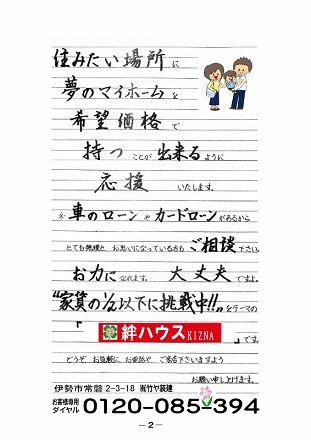 住みたい場所に
夢のマイホームを
希望価格で
持つことが出来るように
応援いたします。
※車のローンやカードローンがあるから
とても無理と、お思いになっている方もご相談下さい。
お力になれます。大丈夫ですよ。
"家賃の1/2以下に挑戦中!!"をテーマの
「絆ハウスKIZNA」です。
どうぞ お気軽に お電話や ご来店下さいますよう
お願い申し上げます。
伊勢市常磐2-3-18 ㈲竹ヤ装建
お客様専用
ダイヤル 0120-085-394
―2―